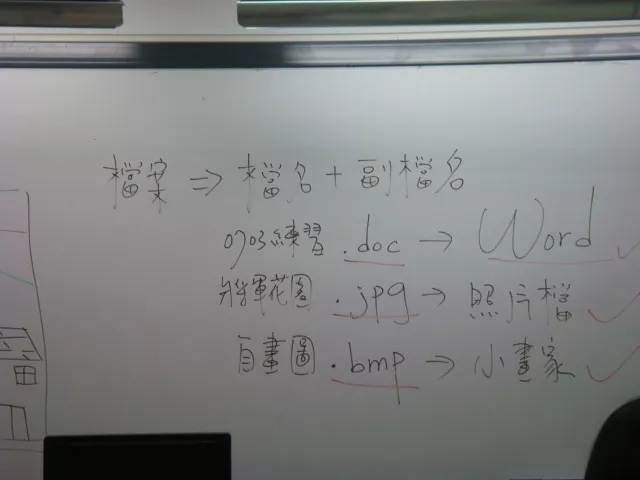 檔案 ⇒ 檔名 + 副檔名
0703練習 .doc → Word
將軍花園 .jpg → 照片檔
自畫圖 .bmp → 小畫家